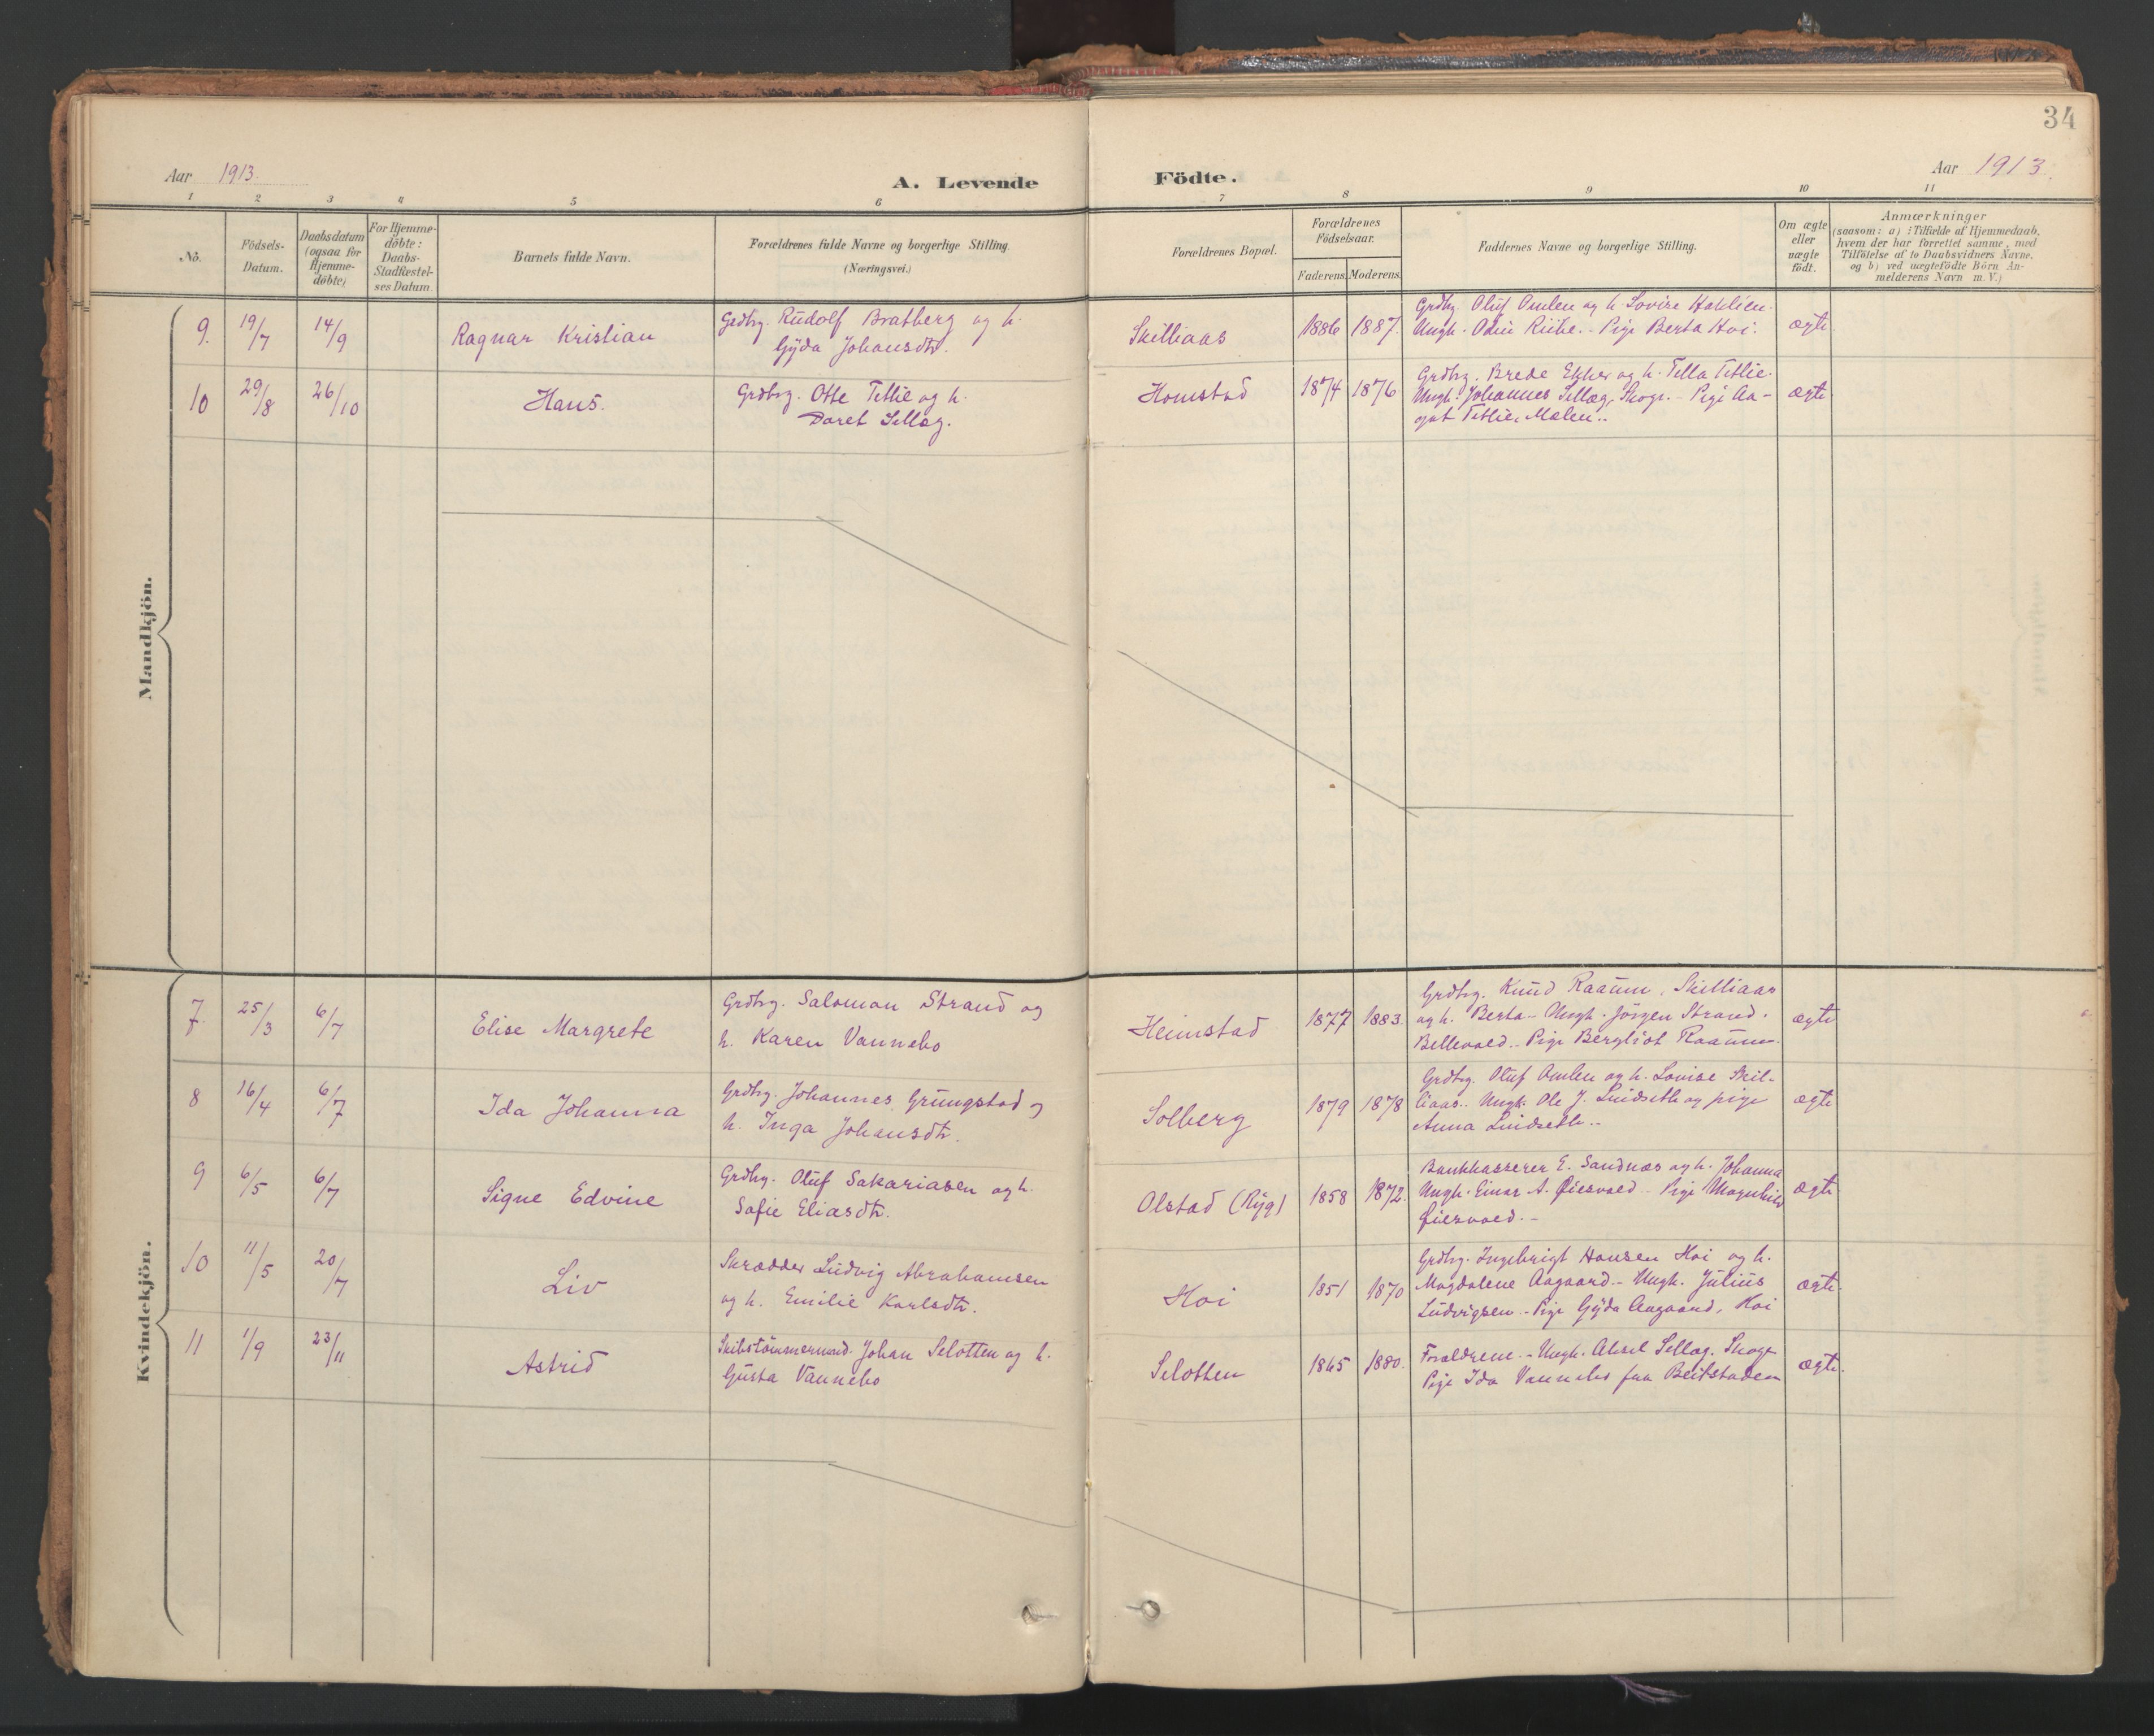 34
Aar 1913.
A. Levende Födte.
Aar 1913.
1 2 3 4 5 6 7 8 9 10 11
No.
Födsels-
Datum.
Daabsdatum
(ogsaa for
Hjemme-
döbte)
For Hjemme-
döbte:
Daabs-
Stadfæstel-
ses Datum.
Barnets fulde Navn.
Forældrenes fulde Navne og borgerlige Stilling.
(Næringsvei.)
Forældrenes Bopæl.
Forældrenes
Födselsaar.
Faderens. Moderens.
Faddernes Navne og borgerlige Stilling.
Om ægte
eller
uægte
födt.
Anmærkninger
(saasom: a) i Tilfælde af Hjemmedaab,
hvem der har forrettet samme, med
Tilföielse af to Daabsvidners Navne,
og b) ved uægtefödte Börn An-
melderens Navn m. V.)
Mandkjön.
9. 19/7 14/9
Ragnar Kristian
Grdbrg. Rudolf Bratberg og h.
Gyda Johansdtr.
Skilliaas
1886 1887.
Grdbrg. Oluf Omlen og h. Lovise
Ungk. Odin - Pige Berta Hoi.
ægte.
10 29/8 26/10
Hans.
Grdbrg. Otte Tetlie og h.
Daret Sellæg.
Homstad
1874 1876
Grdbrg. Brede Ekker og h. Tella Tetlie.
Ungk. Johannes Sellæg, Skoge. - Pige Aa-
got Tetlie, Mælen..
ægte.
Kvindekjön.
7. 25/3 6/7
Elise Margrete
Grdbrg. Salomon Strand og
h. Karen Vannebo
Heimstad
1877 1883.
Grdbrg. Knud Raaum, Skilliaas
og h. Berta - Ungk. Jörgen Strand.
Bellevaed - Pige Bergliot Raaum.
ægte
8 16/4 6/7
Ida Johanna
Grdbrg. Johannes Grungstad og
h. Inga Johansdtr.
Solberg
1879 1878
Grdbrg. Oluf Omlen og h. Lovise Skil-
liaas.. Ungk. Ole J. Lindseth og pige
Anna Lindseth..
ægte
9 6/5 6/7
Signe Edvine
Grdbrg. Oluf Sakariasen og h.
Sofie Eliasdtr.
Olstad (Ryg)
1858 1872.
Bankkasserer E. Sandnæs og h. Johanna
Ungk. Einar A. Øiesvaed - Pige Magnhild
Øiesvaed. -
ægte.
10 11/5 20/7
Liv
Skrædder Ludvig Abrahamsen
og h. Emilie Karlsdtr.
Hoi
1851 1870
Grdbrg. Ingebrigt Hansen Hoi og h.
Magdalene Aagaard - Ungk. Julius
Ludvigsen - Pige Gyda Aagaard, Hoi
ægte.
11 1/9 23/11
Astrid
Skibstömmermd. Johan Slotten og h.
Gusta Vannebo
Slotten
1865 1880.
Forældrene. - Ungk. Aksel Sellæg. Skoge
Pige Ida Vannebo fra Beitstaden
ægte.